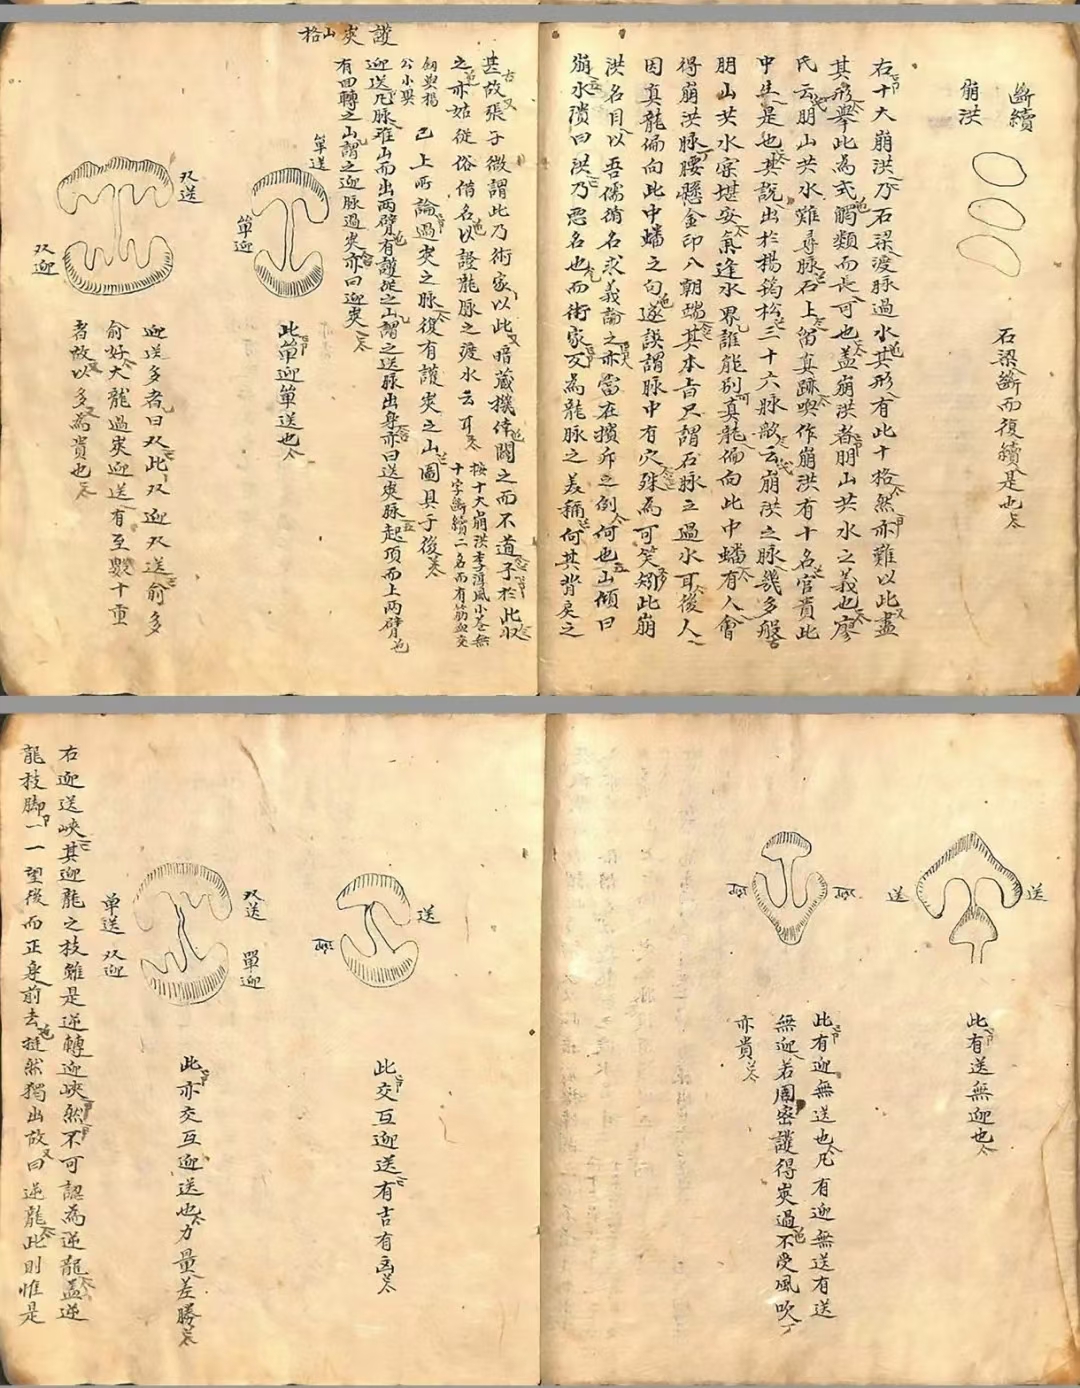 斷續
崩洪
石梁斷而復續是也
右十大崩洪乃石梁渡脉過水其形有此十格然亦難以此盡
其形舉此為式觸類而長可也盖崩洪者朋山共水之義也廖
氏云朋山共水難尋脉石上留真跡喚作崩洪有十名官貴此
中生是也其說出於楊筠松三十六脉歌云崩洪之脉幾多般
朋山共水宗堪安氣逢水界誰能別真龍偏向此中蟠有人會
得崩洪脉腰懸金印八朝端其本旨只謂石脉之過水耳後人
因真龍偏向此中蟠之句遂誤謂脉中有穴殊為可笑矧此崩
洪名目以吾儒循名求義論之亦當在擯斥之例何也山傾曰
崩水潰曰洪乃惡名也而術家反為龍脉之美稱何其背戾之
甚故張子微謂此乃術家以此暗蔵機倖闗之而不道予於此収
之亦姑從俗借名以證龍脉之渡水云耳
按十大崩洪李淳風小卷無
十字斷續二名而有筋血交
劔與楊
公小異
已上所論過峽之脉復有護峽之山圖具于後
護峽山格
迎送凡脉雖山而出兩臂有護從之山謂之送脉出身亦曰送峽脉起項而上兩臂
有回轉之山謂之迎脉過峽亦曰迎峽
單送
單迎
此單迎單送也
双送
双迎
迎送多者曰双此双迎双送俞多
俞好大龍過峽迎送有至數十重
者故以多為貴也
送
送
此有送無迎也
迎
迎
此有迎無送也凡有迎無送有送
無迎若周密護得峽過不受風吹
亦貴
送
迎
此交互迎送有吉有凶
双送
單迎
单送
双迎
此亦交互迎送也力量差勝
右迎送峽其迎龍之枝雖是逆轉迎峽然不可認為逆龍盖逆
龍枝脚一一望後而正身前去挺然獨出故曰逆龍此則惟是